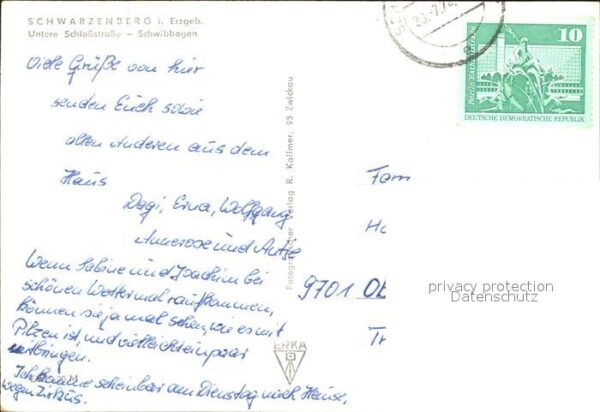 SCHWARZENBERG i. Erzgeb.
Untere Schloßstraße – Schwibbogen
Viele Grüße von hier
senden Euch sowie
allen Anderen aus dem
Haus
Dagi, Erna, Wolfgang
Annerose und Antje
Wenn Sabine und Joachim bei
schönen Wetter mal raufkommen,
können sie ja mal sehen, wie es mit
Pilzen ist, und vielleicht ein paar
mitbringen.
Ich komme scheinbar am Dienstag nach Hause,
wegen Zirkus.
Fotografischer Verlag R. Kallmer, 95 Zwickau
ERKA
10
DEUTSCHE DEMOKRATISCHE REPUBLIK
Fam
9701
privacy protection
Datenschutz